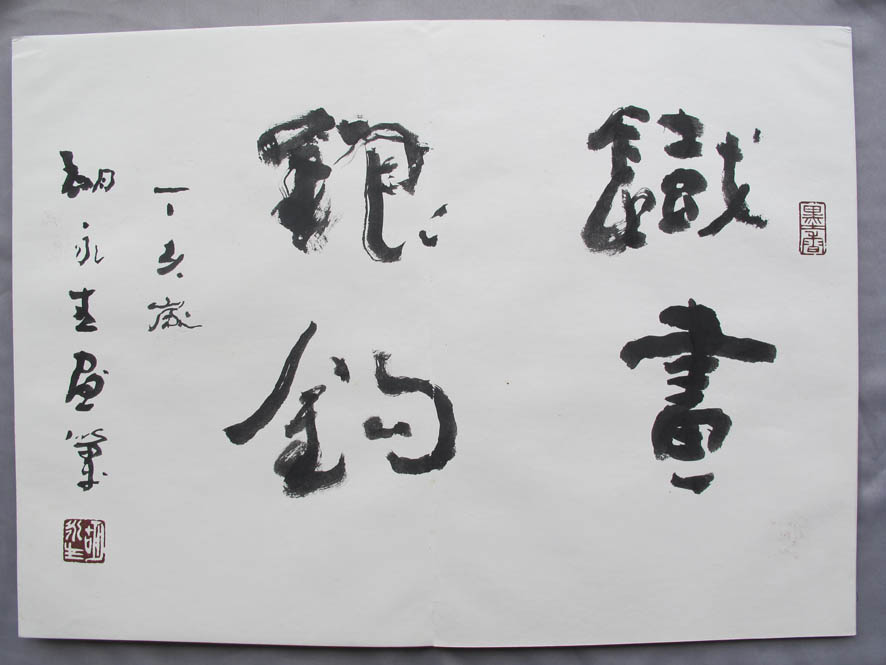 墨香
鐵畫
銀鈎
丁亥歲
胡永生
胡永生